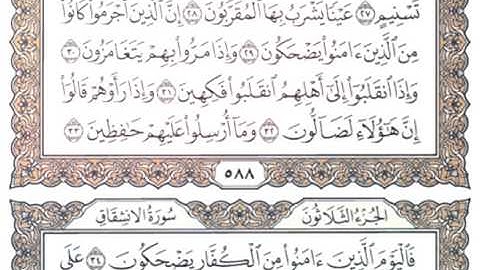 تَسْنِيمٍ ٢٧ عَيْنًا يَشْرَبُ بِهَا ٱلْمُقَرَّبُونَ ٢٨ إِنَّ ٱلَّذِينَ أَجْرَمُوا۟ كَانُوا۟
مِنَ ٱلَّذِينَ ءَامَنُوا۟ يَضْحَكُونَ ٢٩ وَإِذَا مَرُّوا۟ بِهِمْ يَتَغَامَزُونَ ٣٠
وَإِذَا ٱنقَلَبُوٓا۟ إِلَىٰٓ أَهْلِهِمُ ٱنقَلَبُوا۟ فَكِهِينَ ٣١ وَإِذَا رَأَوْهُمْ قَالُوٓا۟
إِنَّ هَٰٓؤُلَآءِ لَضَآلُّونَ ٣٢ وَمَآ أُرْسِلُوا۟ عَلَيْهِمْ حَٰفِظِينَ ٣٣
٥٨٨
الجُزْءُ الثَّلَاثُونَ سُورَةُ الِانشِقَاقِ
فَٱلْيَوْمَ ٱلَّذِينَ ءَامَنُوا۟ مِنَ ٱلْكُفَّارِ يَضْحَكُونَ ٣٤ عَلَى